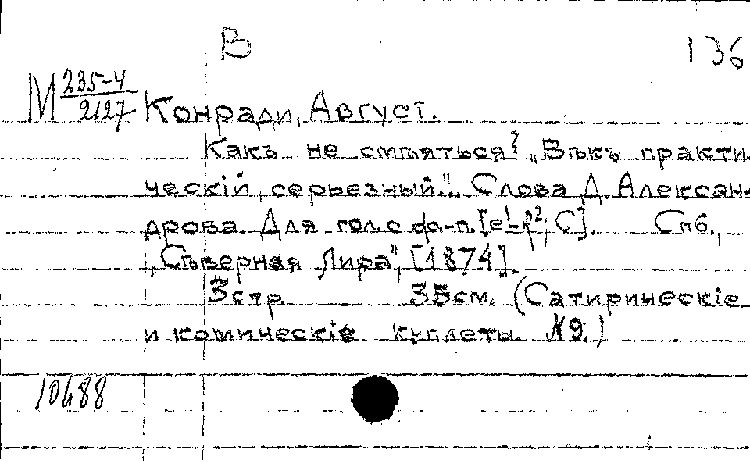 В 136
М 235-4/2127 Конради, Август.
Какъ не смѣяться? „Вѣкъ практи-
ческій, серьезный..". Слова Д. Алексан-
дрова. Для гол. с ф.-п. [С]. Спб.,
„Сѣверная Лира", [1874].
3 стр. 35 см. (Сатирическіе
и комическіе куплеты. №9.)
10488